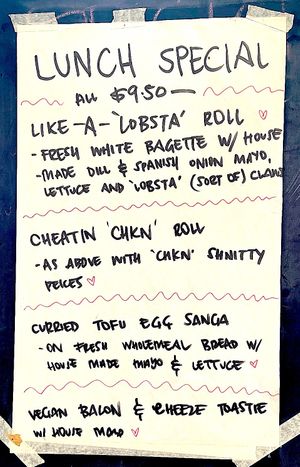 LUNCH SPECIAL
ALL $9.50 —
LIKE-A-'LOBSTA' ROLL
- FRESH WHITE BAGETTE W/ HOUSE
- MADE DILL & SPANISH ONION MAYO,
LETTUCE AND 'LOBSTA' (SORT OF) CLAWS
CHEATIN 'CHKN' ROLL
- AS ABOVE WITH 'CHKN' SHNITTY
PEICES
CURRIED TOFU EGG SANGA
- ON FRESH WHOLEMEAL BREAD W/
HOUSE MADE MAYO & LETTUCE
VEGAN BACON & CHEEZE TOASTIE
W/ HOUSE MAYO